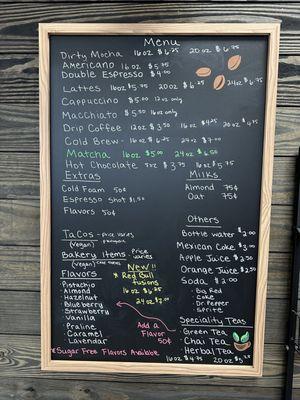 Menu
Dirty Mocha 16oz $6.25 20oz $6.75
Americano 16oz $5.75
Double Espresso $4.00
Lattes 16oz $5.75 20oz $6.25 24oz $6.75
Cappuccino $5.00 12oz only
Macchiato $5.50 16oz only
Drip Coffee 12oz $3.50 16oz $4.25 20oz $4.75
Cold Brew - 16oz $6.25 24oz $7.00
Matcha 16oz $5.00 24oz $6.50
Hot Chocolate 8oz $3.75 16oz $5.75
Extras
Cold Foam 50¢
Espresso Shot $1.50
Flavors 50¢
Milks
Almond 75¢
Oat 75¢
Others
Bottle water $2.00
Mexican Coke $3.00
Apple Juice $2.50
Orange Juice $2.50
Soda $2.00
• Big Red
• Coke
• Dr. Pepper
• Sprite
Tacos - price varies
(vegan)
Bakery Items Price varies
(vegan)
Flavors
• Pistachio
• Almond
• Hazelnut
• Blueberry
• Strawberry
• Vanilla
• Praline
• Caramel
• Lavendar
*Sugar Free Flavors Available
New!!
* Red Bull
fusions
16oz $6.25
24oz $7.00
Add a
Flavor
50¢
Specialty Teas
• Green Tea
• Chai Tea
• Herbal Tea
16oz $4.75 20oz $5.25